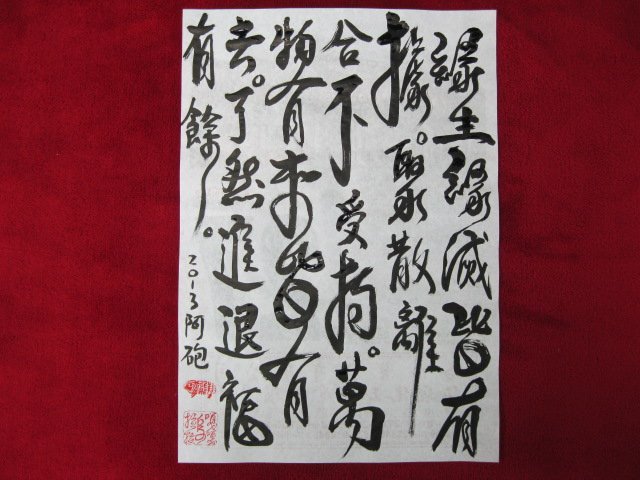 緣生緣滅皆有
據。聚散離
合不受持。萬
物有來皆有
去。了然進退福
有餘。
2013阿砲